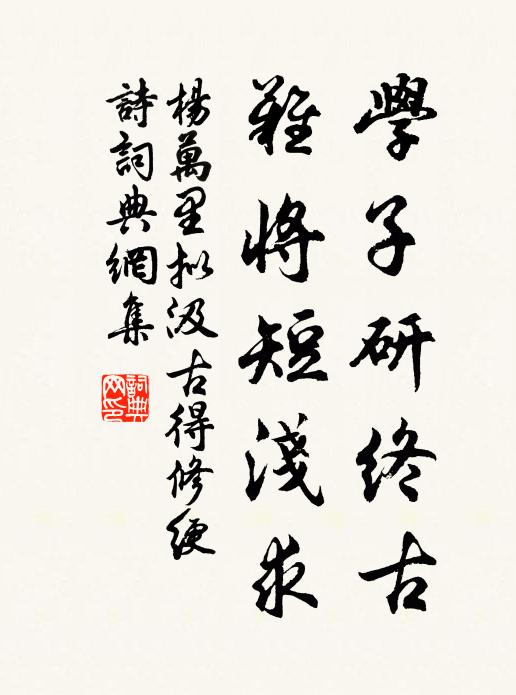 學子研終古
難將短淺求
楊萬里拟汲古得修绠
詩詞典網集
詞典网印